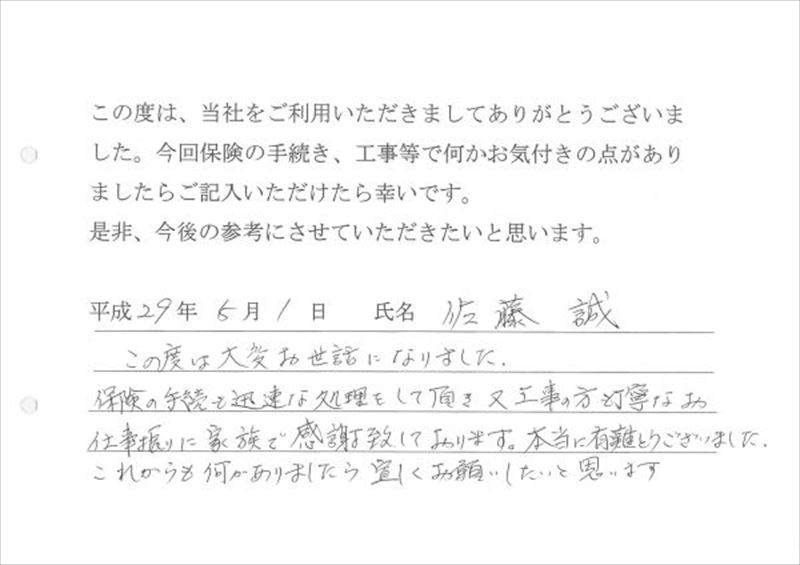 この度は、当社をご利用いただきましてありがとうございま
した。今回保険の手続き、工事等で何かお気付きの点があり
ましたらご記入いただけたら幸いです。
是非、今後の参考にさせていただきたいと思います。
平成29年 5月 1日 氏名 佐藤 誠
この度は大変お世話になりました.
保険の手続も迅速な処理をして頂き又工事の方も丁寧なお
仕事振りに家族で感謝致しております。本当に有難とうございました.
これからも何かありましたら宜しくお願いしたいと思います